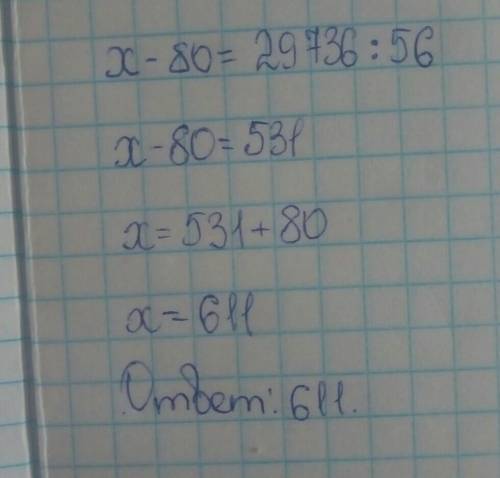 x - 80 = 29736 : 56
x - 80 = 531
x = 531 + 80
x = 611
Ответ: 611.